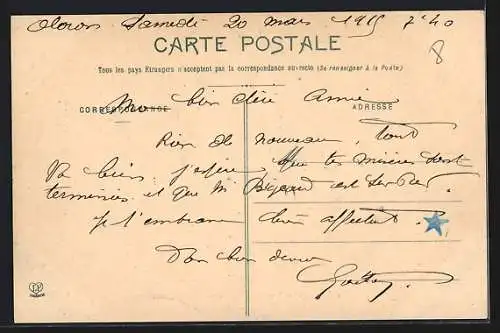 Oloron Samedi 20 mars 1915 7h40
8
CARTE POSTALE
Tous les pays Etrangers n'acceptent pas la correspondance au recto (Se renseigner à la Poste)
CORRESPONDANCE
ADRESSE
Mon bien chère Amie
Rien de nouveau, tout
va bien. j'espère que tes misères sont
terminées et que M. Bigeard est
Je t'embrasse bien affect
Ton bien